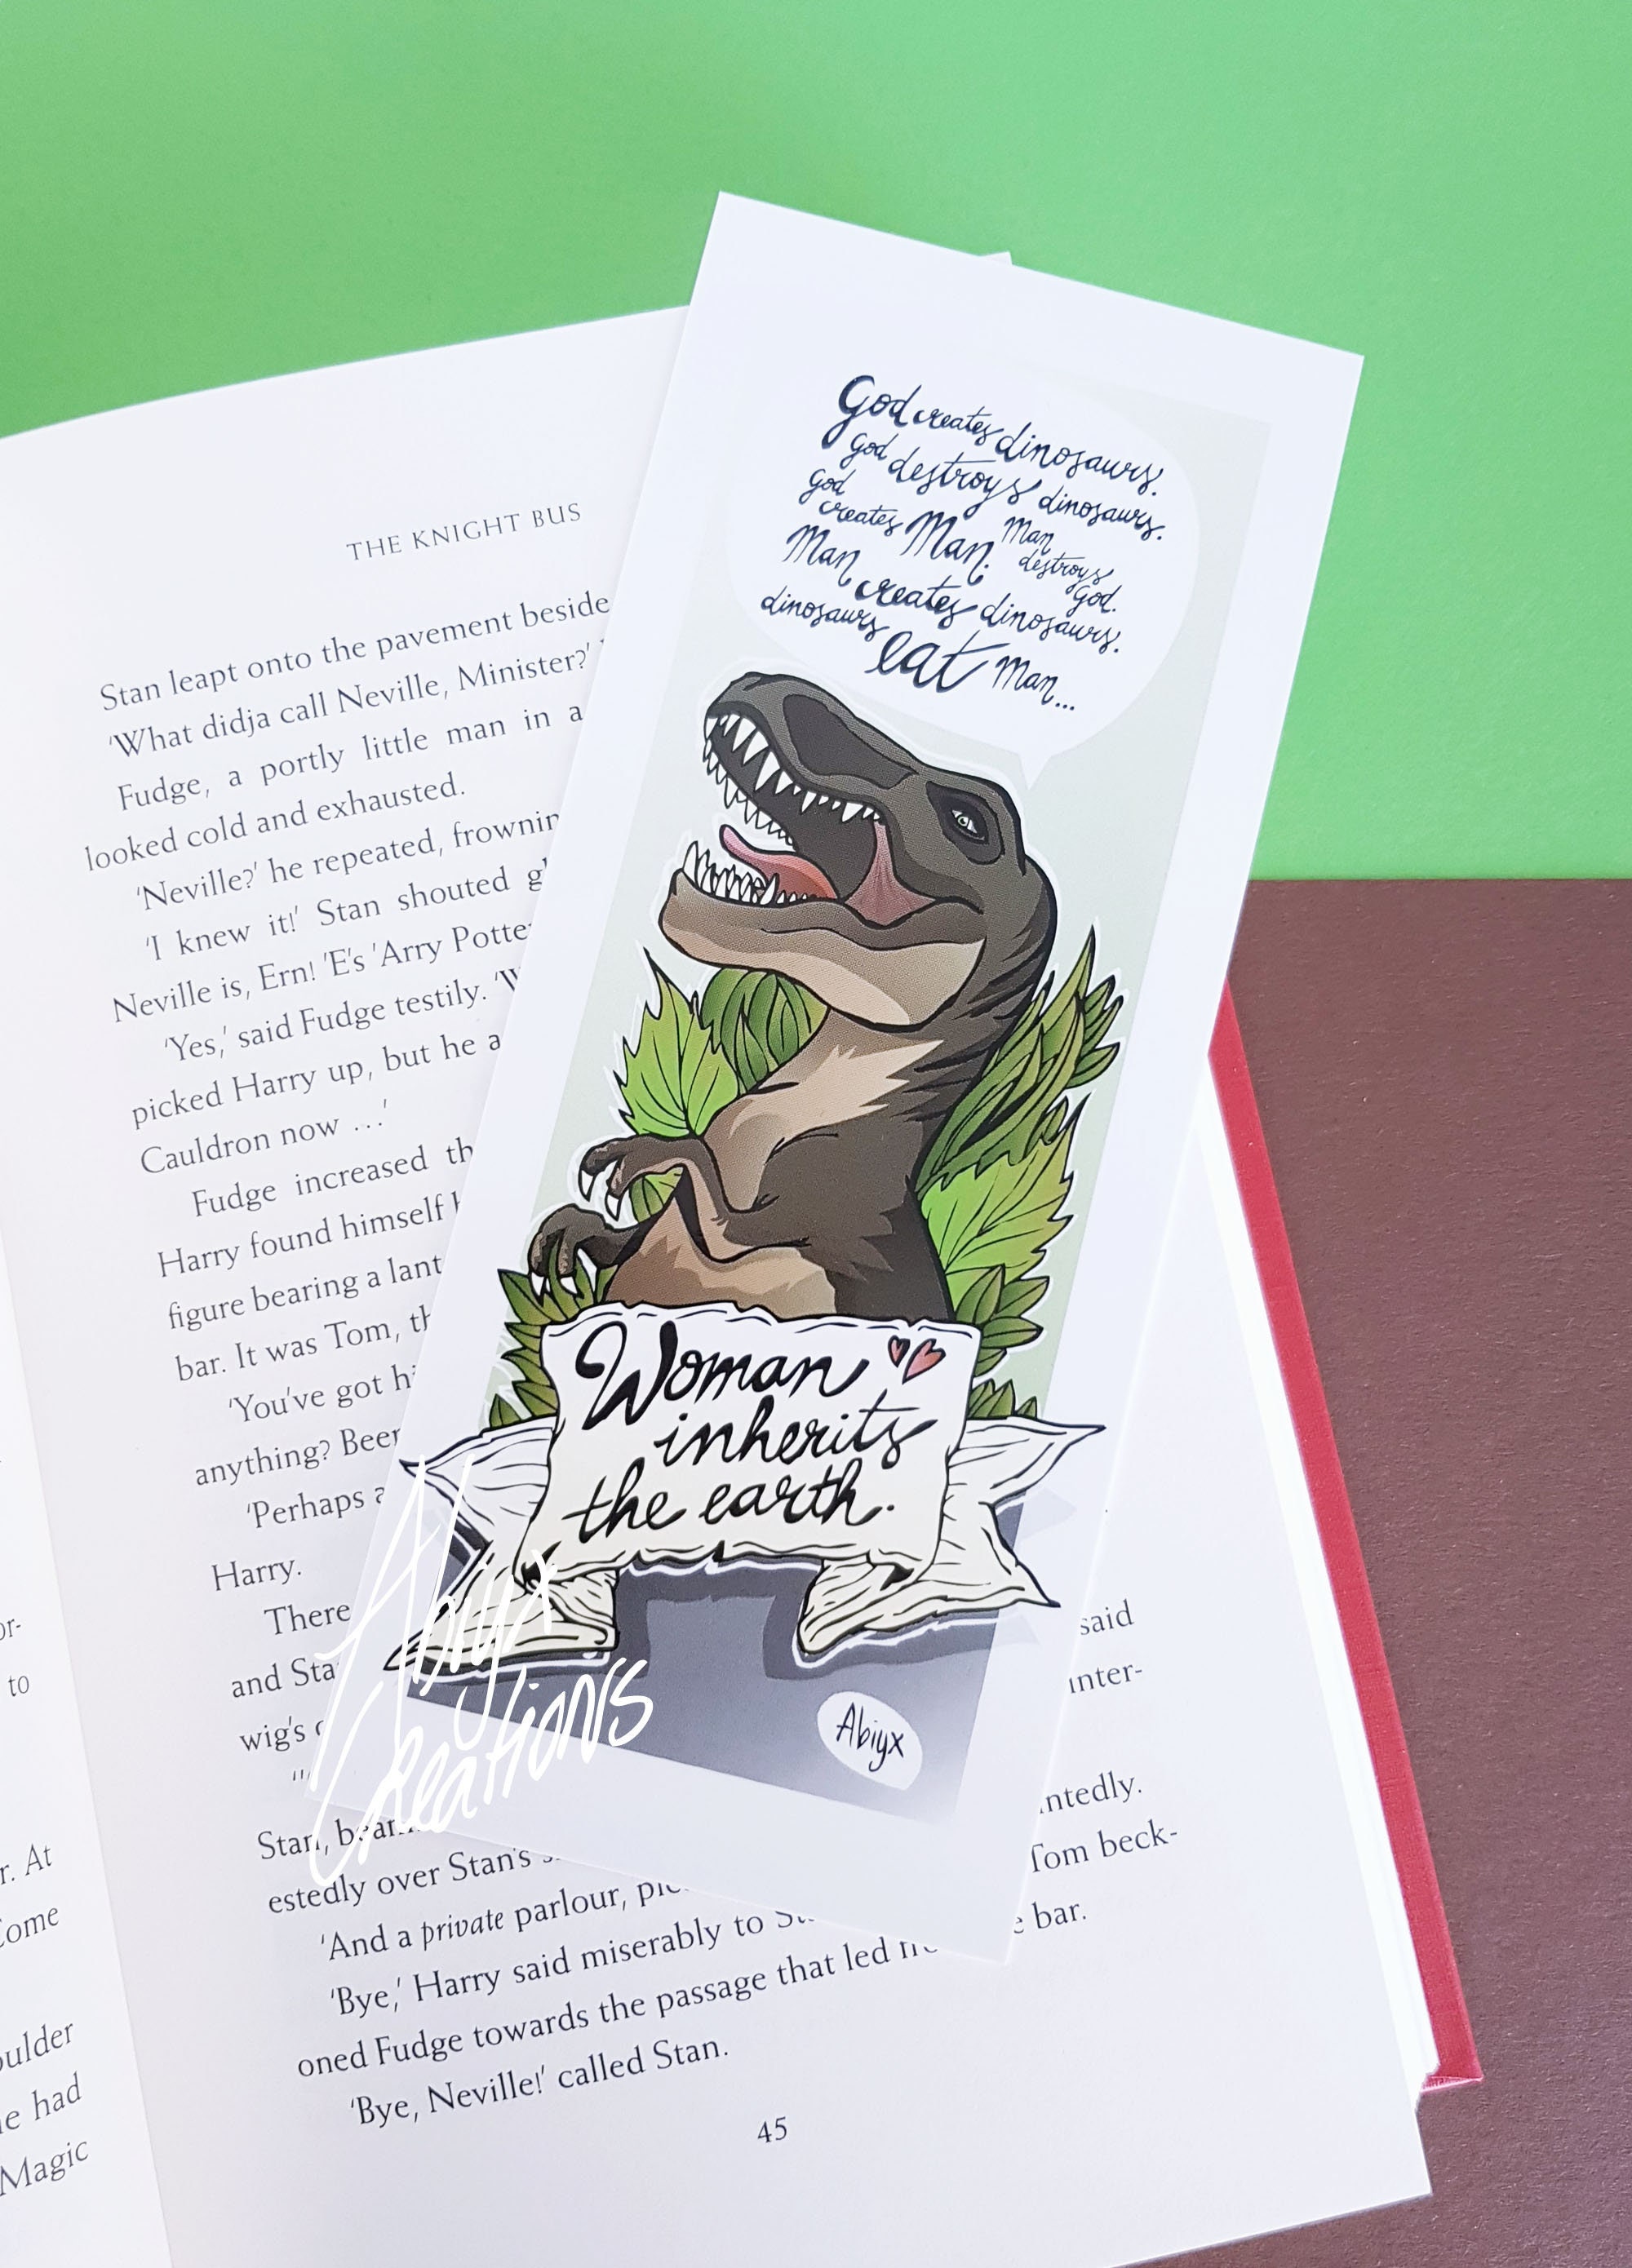 God creates dinosaurs.
God destroys dinosaurs.
God creates Man. Man destroys God.
Man creates dinosaurs.
dinosaurs eat Man...
Woman
inherits
the earth.
Abiyx
Abiyx
Creations
THE KNIGHT BUS
Stan leapt onto the pavement beside
'What didja call Neville, Minister?'
Fudge, a portly little man in a
looked cold and exhausted.
'Neville?' he repeated, frownin
'I knew it!' Stan shouted g
Neville is, Ern! 'E's 'Arry Potte
'Yes,' said Fudge testily. 'W
picked Harry up, but he a
Cauldron now ...'
Fudge increased th
Harry found himself
figure bearing a lant
bar. It was Tom, th
'You've got hi
anything? Beer
'Perhaps a
Harry.
There
and Sta
said
wig's
inter-
Stan, bear
ntedly.
estedly over Stan's
Tom beck-
'And a private parlour, pl
'Bye,' Harry said miserably to St
e bar.
oned Fudge towards the passage that led
'Bye, Neville!' called Stan.
45
or-
to
r. At
Come
oulder
e had
Magic